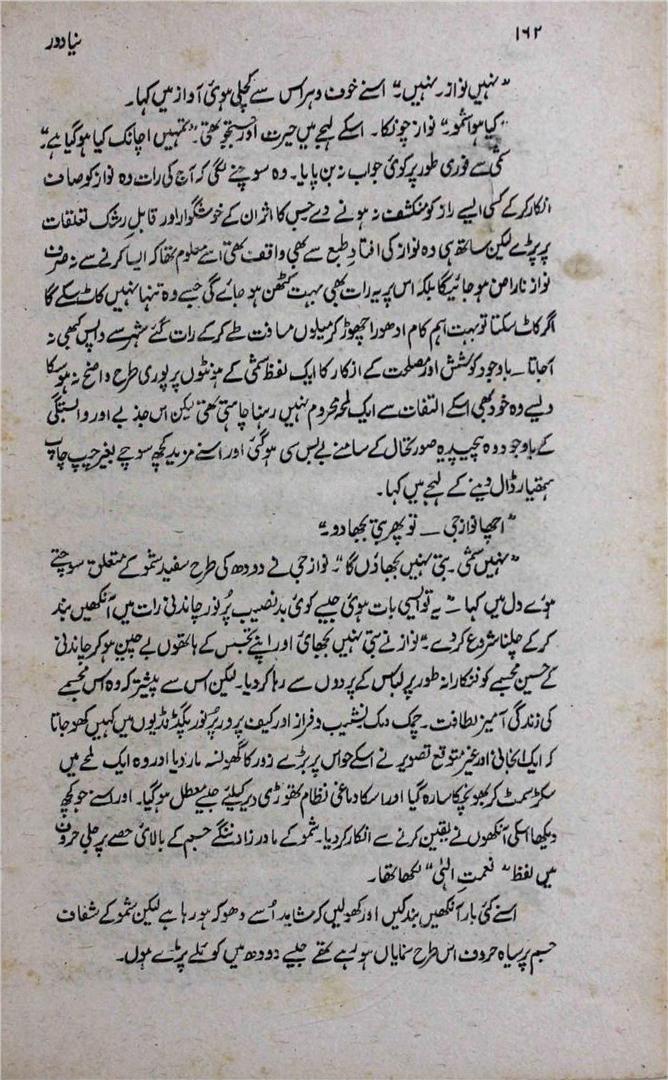 ۱۶۲
نیا دور
”نہیں نواز۔ نہیں۔“ اسنے خوف و ہراس سے کچلی ہوئی آواز میں کہا۔
”کیا ہوا شمو۔“ نواز چونکا۔ اسکے لہجے میں حیرت اور جستجو تھی۔ ”تمہیں اچانک کیا ہو گیا ہے۔“
شمی سے فوری طور پر کوئی جواب نہ بن پایا۔ وہ سوچنے لگی کہ آج کی رات وہ نواز کو صاف
انکار کر کے کسی ایسے راز کو منکشف نہ ہونے دے جس کا اثر ان کے خوشگوار اور قابلِ رشک تعلقات
پر پڑے لیکن ساتھ ہی وہ نواز کی افتادِ طبع سے بھی واقف تھی اسے معلوم تھا کہ ایسا کرنے سے نہ صرف
نواز ناراض ہو جائیگا بلکہ اس پر یہ رات بھی بہت کٹھن ہو جائے گی جسے وہ تنہا نہیں کاٹ سکے گا
اگر کاٹ سکتا تو بہت اہم کام ادھورا چھوڑ کر میلوں مسافت طے کر کے رات گئے شہر سے واپس کبھی نہ
آجاتا۔ باوجود کوشش اور مصلحت کے انکار کا ایک لفظ شمی کے ہونٹوں پر پوری طرح واضح نہ ہو سکا
ویسے وہ خود بھی اسکے التفات سے ایک لمحہ محروم نہیں رہنا چاہتی تھی لیکن اس جذبے اور وابستگی
کے باوجود وہ پیچیدہ صورتحال کے سامنے بے بس سی ہو گئی اور اسنے مزید کچھ سوچے بغیر چپ چاپ
ہتھیار ڈال دینے کے لہجے میں کہا۔
”اچھا نواز جی — تو پھر بتی بجھا دو۔“
”نہیں شمی۔ بتی نہیں بجھاؤں گا“۔ نواز جی نے دودھ کی طرح سفید شمو کے متعلق سوچتے
ہوئے دل میں کہا — ”یہ تو ایسی بات ہوئی جیسے کوئی بدنصیب پُر نور چاندنی رات میں آنکھیں بند
کر کے چلنا شروع کر دے۔“ نواز نے بتی نہیں بجھائی اور اپنے تجسس کے ہاتھوں بے چین ہو کر چاندنی
کے حسین مجسمے کو فنکارانہ طور پر لباس کے پردوں سے رہا کر دیا۔ لیکن اس سے پیشتر کہ وہ اس مجسمے
کی زندگی آمیز لطافت۔ چمک دمک نشیب و فراز اور کیف پرور پُر نور پگڈنڈیوں میں کہیں کھو جاتا
کہ ایک انجانی اور غیر متوقع تصویر نے اسکے حواس پر بڑے زور کا گھونسہ مار دیا اور وہ ایک لمحے میں
سکڑ سمٹ کر بھونچکا سا رہ گیا اور اسکا دماغی نظام تھوڑی دیر کیلئے جیسے معطل ہو گیا۔ اور اسنے جو کچھ
دیکھا اسکی آنکھوں نے یقین کرنے سے انکار کر دیا۔ شمو کے مادر زاد ننگے جسم کے بالائی حصے پر جلی حروف
میں لفظ ”نعمت الٰہی“ لکھا تھا۔
اسنے کئی بار آنکھیں بند کیں اور کھولیں کہ شاید اُسے دھوکہ ہو رہا ہے لیکن شمو کے شفاف
جسم پر سیاہ حروف اس طرح نمایاں ہو رہے تھے جیسے دودھ میں کوئلے پڑے ہوں۔